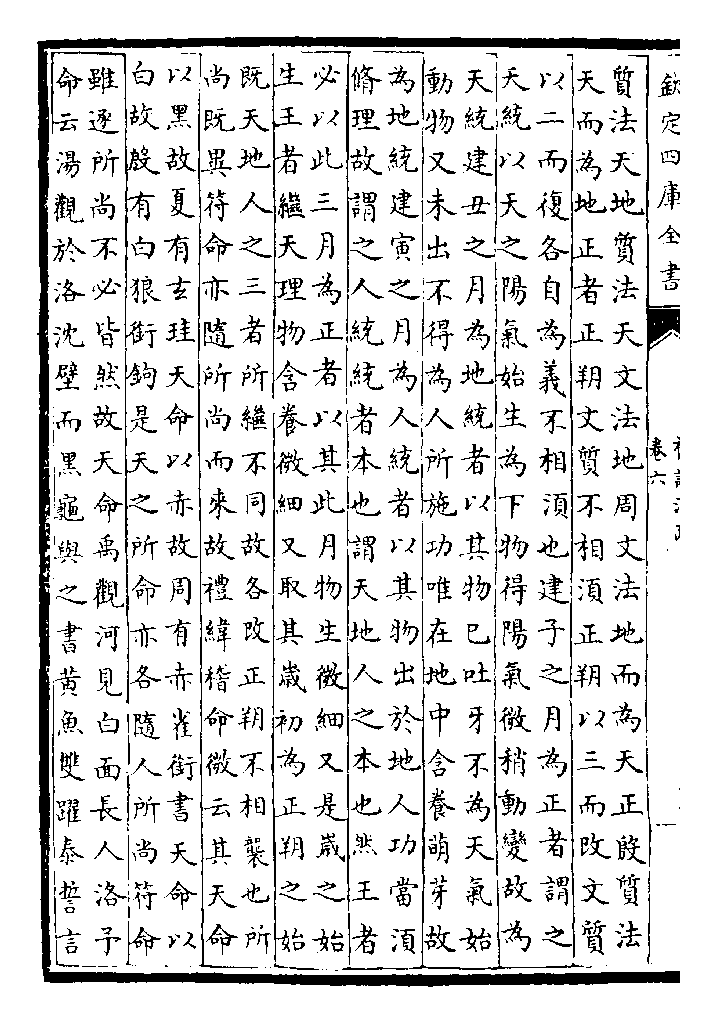 欽定四庫全書
卷六
質法天地質法天文法地周文法地而為天正殷質法
天而為地正者正朔文質不相湏正朔以三而改文質
以二而復各自為義不相湏也建子之月為正者謂之
天統以天之陽氣始生為下物得陽氣微稍動變故為
天統建丑之月為地統者以其物已吐牙不為天氣始
動物又未出不得為人所施功唯在地中含養萌芽故
為地統建寅之月為人統者以其物出於地人功當湏
脩理故謂之人統統者本也謂天地人之本也然王者
必以此三月為正者以其此月物生微細又是嵗之始
生王者繼天理物含養微細又取其嵗初為正朔之始
既天地人之三者所繼不同故各改正朔不相襲也所
尚既異符命亦隨所尚而來故禮緯稽命徴云其天命
以黑故夏有玄珪天命以赤故周有赤雀銜書天命以
白故殷有白狼銜鉤是天之所命亦各隨人所尚符命
雖逐所尚不必皆然故天命禹觀河見白面長人洛予
命云湯觀於洛沈璧而黑龜與之書黄魚雙躍泰誓言